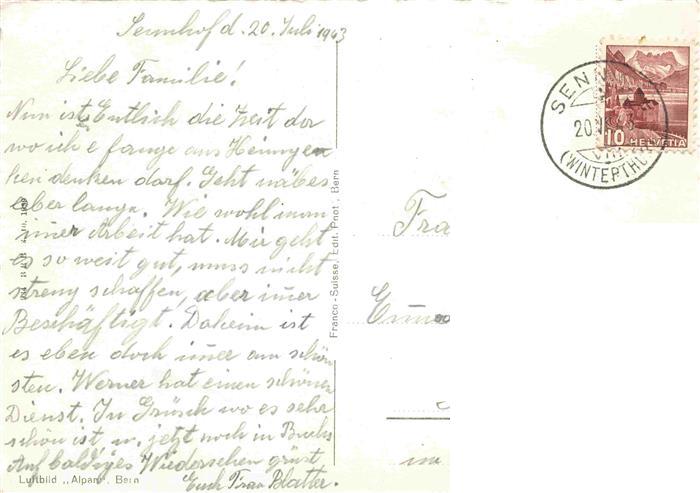 Sennhof d. 20. Juli 1943
Liebe Familie!
Nun ist Entlich die Zeit dor
wo ich e fange ans Heimgen
hen denken darf. Geht näbes
eber lang. Wie wohl man
imer Arbeit hat. Mir geht
es so weit gut, muss nicht
streng schaffen, aber imer
Beschäftigt. Daheim ist
es eben doch imer am schön
sten. Werner hat einen schönen
Dienst. In Grüsch wo es sehr
schön ist u. jetzt noch in Buchs
Auf baldiges Wiedersehen grüst
Euch Frau Blatter.
Luftbild „Alpar", Bern
Franco-Suisse, Edit. Phot., Bern
SENN
20.
(WINTERTHU
10 HELVETIA
Fra
im